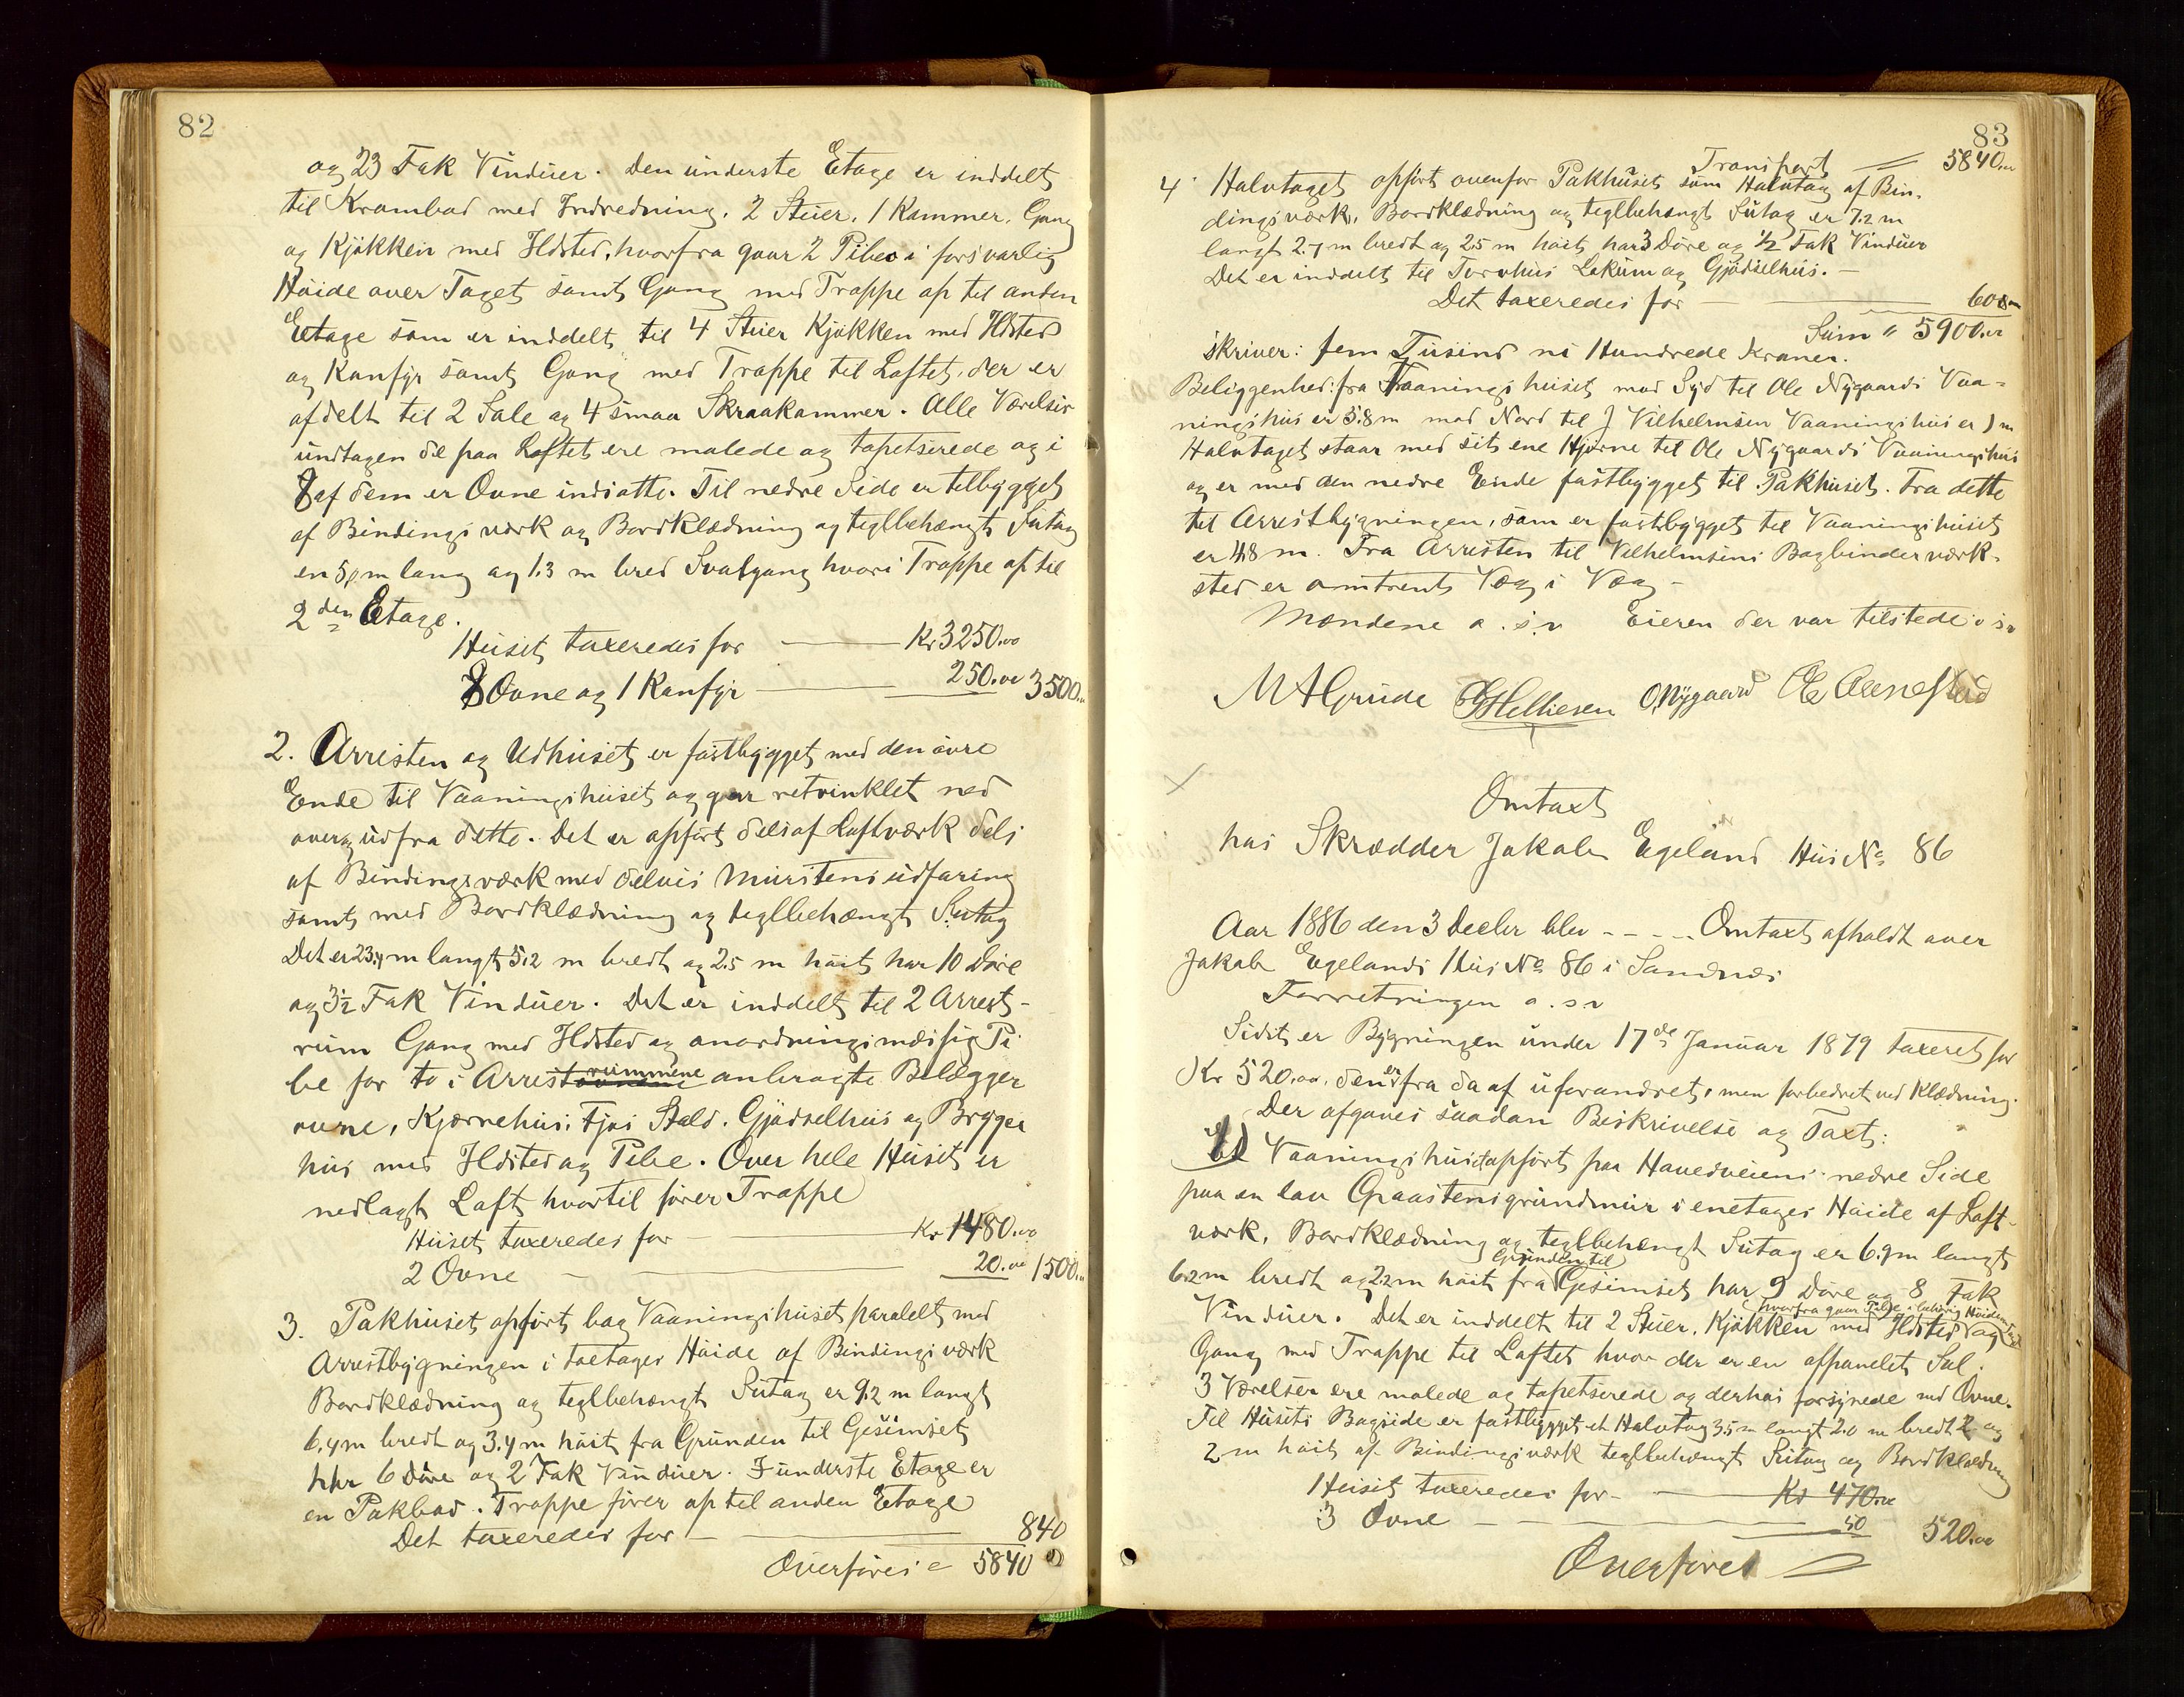 82
og 23 Fak Vinduer. Den underste Etage er inddelt
til Krambod med Indredning. 2 Stuer, 1 Kammer, Gang
og Kjøkken med Ildsted, hvorfra gaar 2 Piber i forsvarlig
Høide over Taget samt Gang med Trappe op til anden
Etage som er inddelt til 4 Stuer Kjøkken med Ildsted
og Kanfyr samt Gang med Trappe til Loftet, der er
afdelt til 2 Sale og 4 smaa Skraakammer. Alle Værelser
undtagen de paa Loftet ere malede og tapetserede og i
8 af dem er Ovne indsatte. Til nedre Side er tilbygget
af Bindingsværk og Bordklædning og teglbehængt Sutag
en 5,0 m lang og 1.3 m bred Svalgang hvori Trappe op til
2den Etage.
Huset taxeredes for Kr 3250.00
8 Ovne og 1 Kanfyr 250.00 3500.00
2. Arresten og Udhuset er fastbygget med den øvre
Ende til Vaaningshuset og gaar retvinklet ned
over og ud fra dette. Det er opført dels af Loftværk dels
af Bindingsværk med delvis Murstens udforing
samt med Bordklædning og teglbehængt Sutag
Det er 23.4 m langt 5.2 m bredt og 2.5 m høit har 10 Døre
og 3½ Fak Vinduer. Det er inddelt til 2 Arrest-
rum Gang med Ildsted og anordningsmæssig Pi
be for to i Arrestrummene anbragte Belægger
ovne, Kjernehus, Fjøs Stald, Gjødselhus og Brygger
hus med Ildsted og Pibe. Over hele Huset er
nedlagt Loft hvortil fører Trappe
Huset taxeredes for Kr 1480.00
2 Ovne 20.00 1500.00
3. Pakhuset opført bag Vaaningshuset paralelt med
Arrestbygningen i toetages Høide af Bindingsværk
Bordklædning og teglbehængt Sutag er 9.2 m langt
6.4 m bredt og 3.4 m høit fra Grunden til Gesimset
har 6 Døre og 2 Fak Vinduer. I underste Etage er
en Pakbod. Trappe fører op til anden Etage
Det taxeredes for 840
Overføres 5840
83
Transport 5840.00
4 Halvtaget opført ovenfor Pakhuset som Halvtag af Bin-
dingsværk, Bordklædning og teglbehængt Sutag er 7.2 m
langt 2.7 m bredt og 2.5 m høit, har 3 Døre og ½ Fak Vinduer
Det er inddelt til Torvhus Lokum og Gjødselhus. —
Det taxeredes for 60.00
Sum " 5900.00
skriver: fem Tusind ni Hundrede Kroner.
Beliggenhed: fra Vaaningshuset mod Syd til Ole Nygaards Vaa-
ningshus er 5.8 m mod Nord til J Vilhelmsen Vaaningshus er ) m
Halvtaget staar med sit ene Hjørne til Ole Nygaards Vaaningshus
og er med den nedre Ende fastbygget til Pakhuset. Fra dette
til Arrestbygningen, som er fastbygget til Vaaningshuset
er 4.8 m. Fra Arresten til Vilhelmsens Bogbinderværk-
sted er omtrent Væg i Væg —
Mændene o. s. v Eieren der var tilstede o s v
M A Grude Helliesen O. Nygaard
Omtaxt
hos Skrædder Jakob Egeland Hus No 86
Aar 1886 den 3 Decbr blev - - - - Omtaxt afholdt over
Jakob Egelands Hus No 86 i Sandnæs
Forretningen o. s v
Sidst er Bygningen under 17de Januar 1879 taxeret for
Kr 520.00. den er fra da af uforandret, men forbedret ved Klædning.
Der afgaves saadan Beskrivelse og Taxt:
Vaaningshuset opført paa Hovedveiens nedre Side
paa en lav Graastensgrundmur i enetages Høide af Loft-
værk, Bordklædning og teglbehængt Sutag er 6.9 m langt
6.2 m bredt og 2.2 m høit fra Grunden til Gesimset har 9 Døre og 8 Fak
Vinduer. Det er inddelt til 2 Stuer, Kjøkken med Ildsted hvorfra gaar Pibe i behørig Høide og
Gang med Trappe til Loftet hvor der er en afpanelet Sal.
3 Værelser ere malede og tapetserede og derhos forsynede med Ovne.
Til Husets Bagside er fastbygget et Halvtag 3.5 m langt 2.0 m bredt og
2 m høit af Bindingsværk teglbehængt Sutag og Bordklædning
Huset taxeredes for Kr 470.00
3 Ovne 50 520.00
Overføres